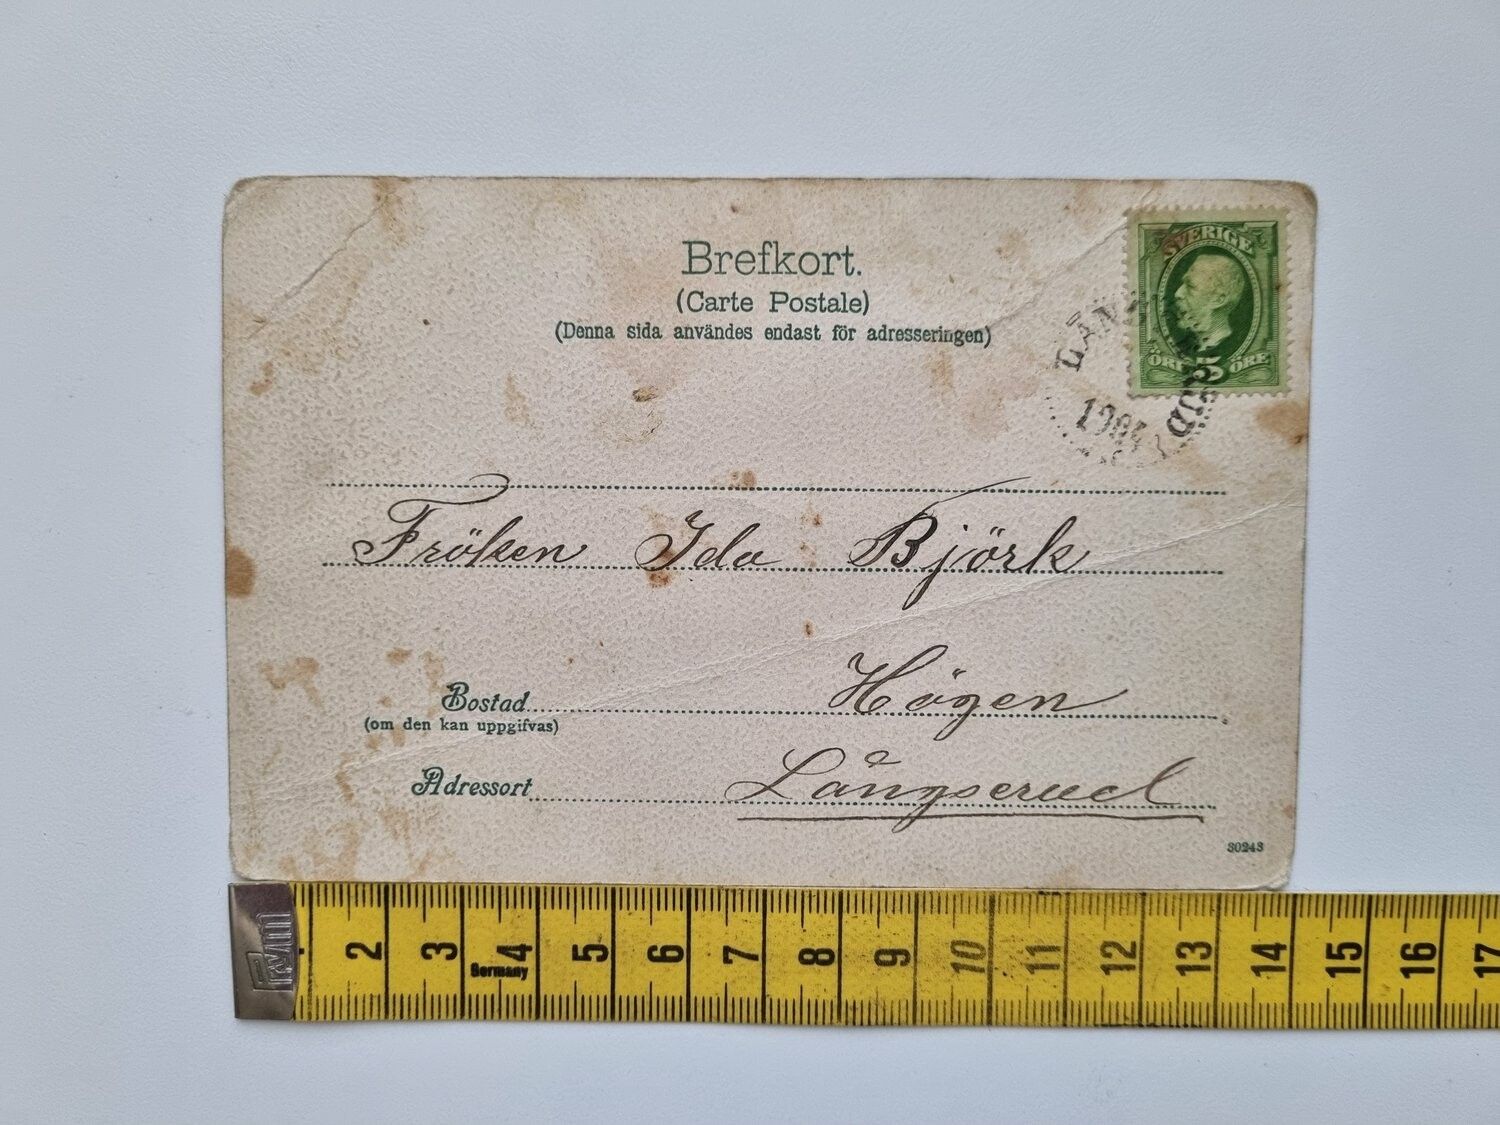 Brefkort.
(Carte Postale)
(Denna sida användes endast för adresseringen)
SVERIGE
ÖRE 5 ÖRE
Fröken Ida Björk
Bostad Högen
(om den kan uppgifvas)
Adressort Långserud
30243
PRYM
2 3 4 5 6 7 8 9 10 11 12 13 14 15 16 17
Germany